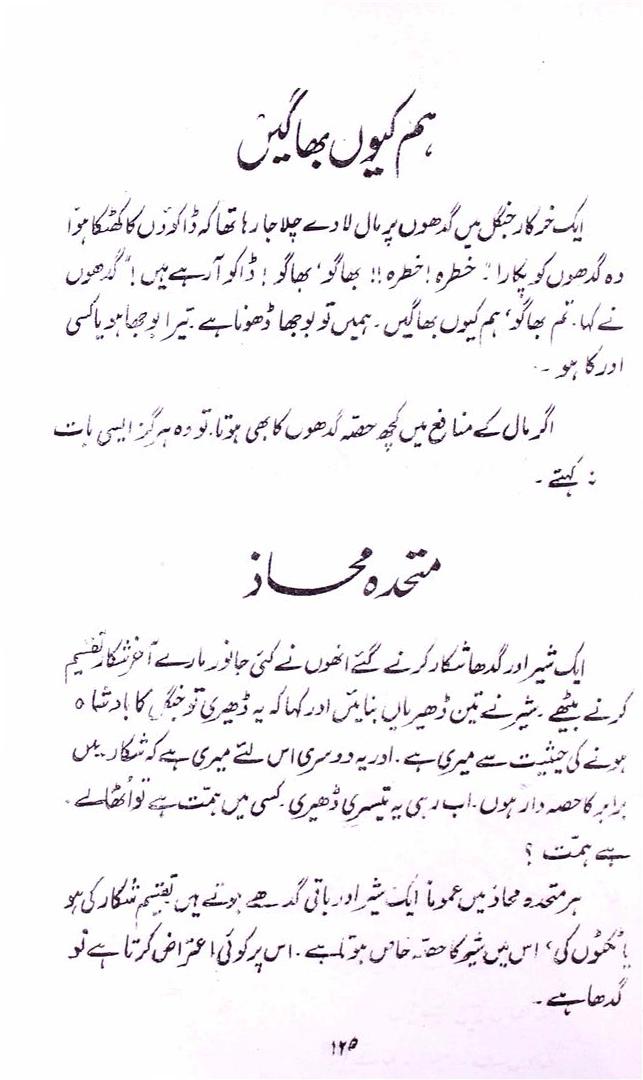 ہم کیوں بھاگیں
ایک خرکار جنگل میں گدھوں پر مال لادے چلا جا رہا تھا کہ ڈاکوؤں کا کھٹکا ہوا
وہ گدھوں کو پکارا "۔ خطرہ! خطرہ!! بھاگو، بھاگو! ڈاکو آ رہے ہیں!" گدھوں
نے کہا۔ تم بھاگو، ہم کیوں بھاگیں۔ ہمیں تو بوجھا ڈھونا ہے۔ تیرا بوجھا ہو یا کسی
اور کا ہو ۔
اگر مال کے منافع میں کچھ حصہ گدھوں کا بھی ہوتا۔ تو وہ ہرگز ایسی بات
نہ کہتے ۔
متحدہ محاذ
ایک شیر اور گدھا شکار کرنے گئے انھوں نے کئی جانور مارے آخر شکار تقسیم
کرنے بیٹھے ۔ شیر نے تین ڈھیریاں بنائیں اور کہا کہ یہ ڈھیری تو جنگل کا بادشاہ
ہونے کی حیثیت سے میری ہے ۔ اور یہ دوسری اس لئے میری ہے کہ شکار میں
برابر کا حصہ دار ہوں۔ اب رہی یہ تیسری ڈھیری۔ کسی میں ہمت ہے تو اُٹھا لے ۔
ہے ہمت ؟
ہر متحدہ محاذ میں عموماً ایک شیر اور باقی گدھے ہوتے ہیں تقسیم شکار کی ہو
یا ٹکٹوں کی، اس میں شیر کا حصہ خاص ہوتا ہے ۔ اس پر کوئی اعتراض کرتا ہے تو
گدھا ہے ۔
۱۲۵